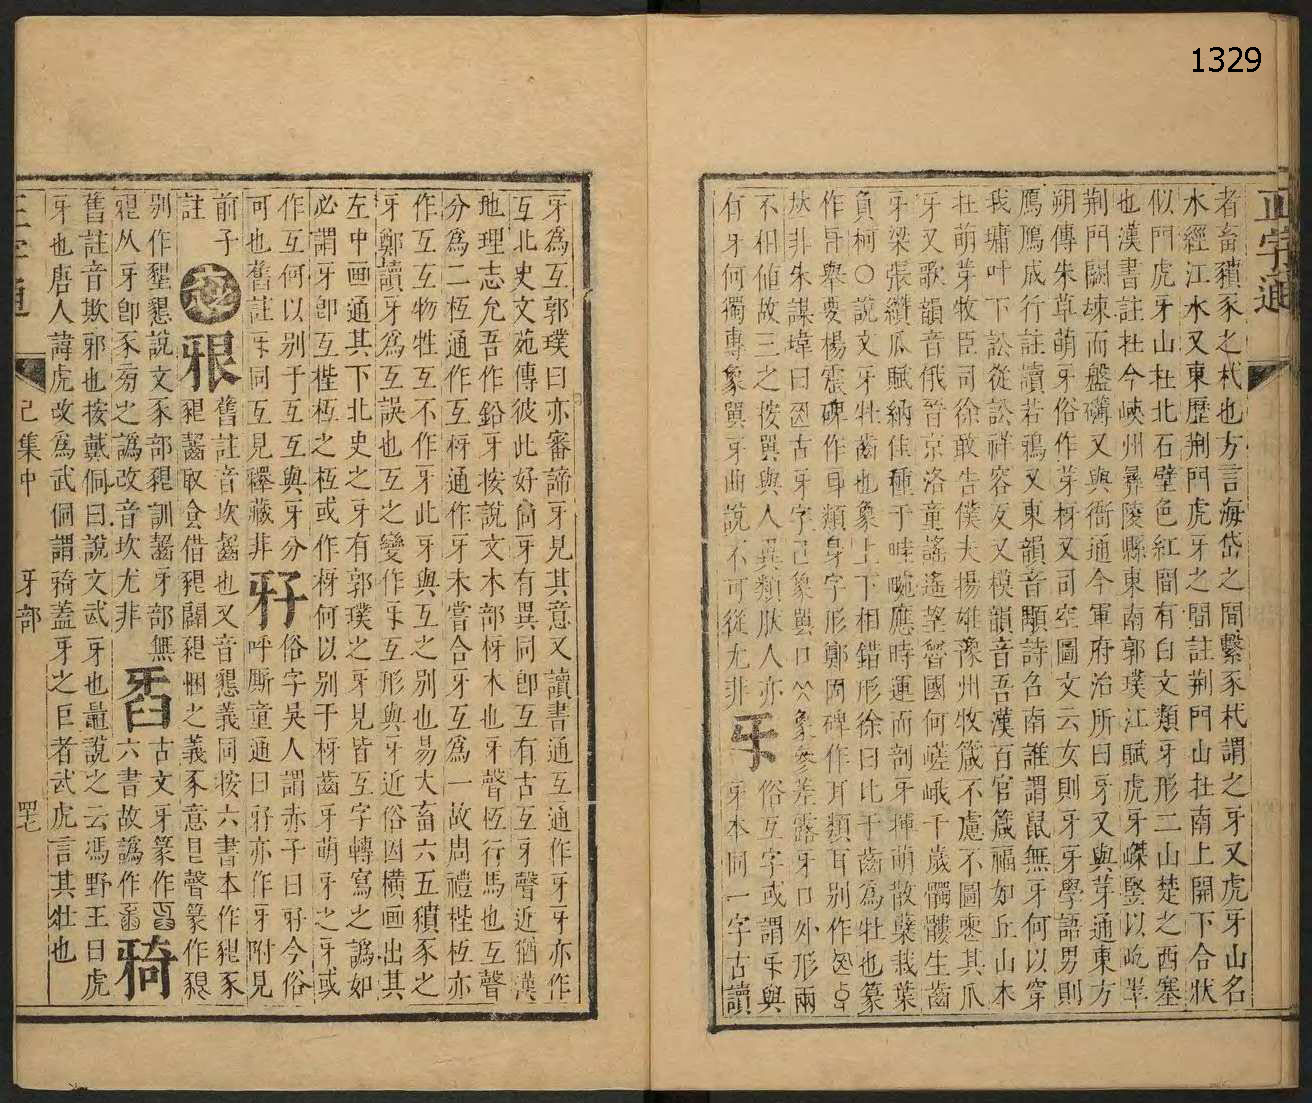 1329
正字通
者畜豶豕之杙也方言海岱之間繫豕杙謂之牙又虎牙山名
水經江水又東歷荆門虎牙之間註荆門山在南上開下合狀
似門虎牙山在北石壁色紅間有白文類牙形二山楚之西塞
也漢書註在今峽州彝陵縣東南郭璞江賦虎牙嵥竪以屹崒
荆門闕竦而盤礴又與衙通今軍府治所曰牙又與芽通東方
朔傳朱草萌牙俗作芽枒又司空圖文云女則牙牙學語男則
鴈鴈成行註讀若鴉又東韻音顒詩召南誰謂鼠無牙何以穿
我墉叶下訟從訟祥容反又模韻音吾漢百官箴福如丘山本
在萌芽牧臣司徐敢告僕夫揚雄豫州牧箴不慮不圖惡其爪
牙又歌韻音俄晉京洛童謠遙望魯國何嵯峨千歲髑髏生齒
牙梁張纘瓜賦納佳種于畦畹應時運而剖牙揮萌散蘖栽葉
負柯〇說文牙牡齒也象上下相錯形徐曰比于齒爲牡也篆
作㸦舉要楊震碑作耳類身字形鄭固碑作耳類耳別作
㹞非朱謀㙔曰古牙字象㗊口象參差露牙口外形兩
不相值故三之按㗊與人異類肰人亦
有牙何獨專象㗊牙曲說不可從尤非
㸦
俗互字或謂㸦與
牙本同一字古讀
牙爲互郭璞曰亦審諦牙見其意又讀書通互通作牙牙亦作
互北史文苑傳彼此好尚牙有異同卽互有古互牙聲近猶漢
地理志允吾作鉛牙按說文木部枒木也牙聲枑行馬也互聲
分爲二枑通作互枒通作牙未嘗合牙互爲一故周禮梐枑亦
作互互物牲互不作牙此牙與互之別也易大畜六五豶豕之
牙鄭讀牙爲互誤也互之變作㸦互形與牙近俗因橫画出其
左中画通其下北史之牙有郭璞之牙見皆互字轉寫之譌如
必謂牙卽互梐枑之枑或作枒何以別于枒齒牙萌牙之牙或
作互何以別于互互與牙分
可也舊註㸦同互見釋藏非
㸧
俗字吳人謂赤子曰㸧今俗
呼厮童通曰㸧亦作牙附見
前子
註
㸪
舊註音坎齧也又音懇義同按六書本作豤豕
豤齧取食借豤闢豤悃之義豕意㫐聲篆作豤
別作墾懇說文豕部豤訓齧牙部無
㸪从牙卽豕旁之譌改音坎尤非
古文牙篆作
六書故譌作
㸨
舊註音欺邪也按戴侗曰說文武牙也鼂說之云馮野王曰虎
牙也唐人諱虎改爲武侗謂㸨蓋牙之巨者武虎言其壯也
正字通
巳集中
牙部